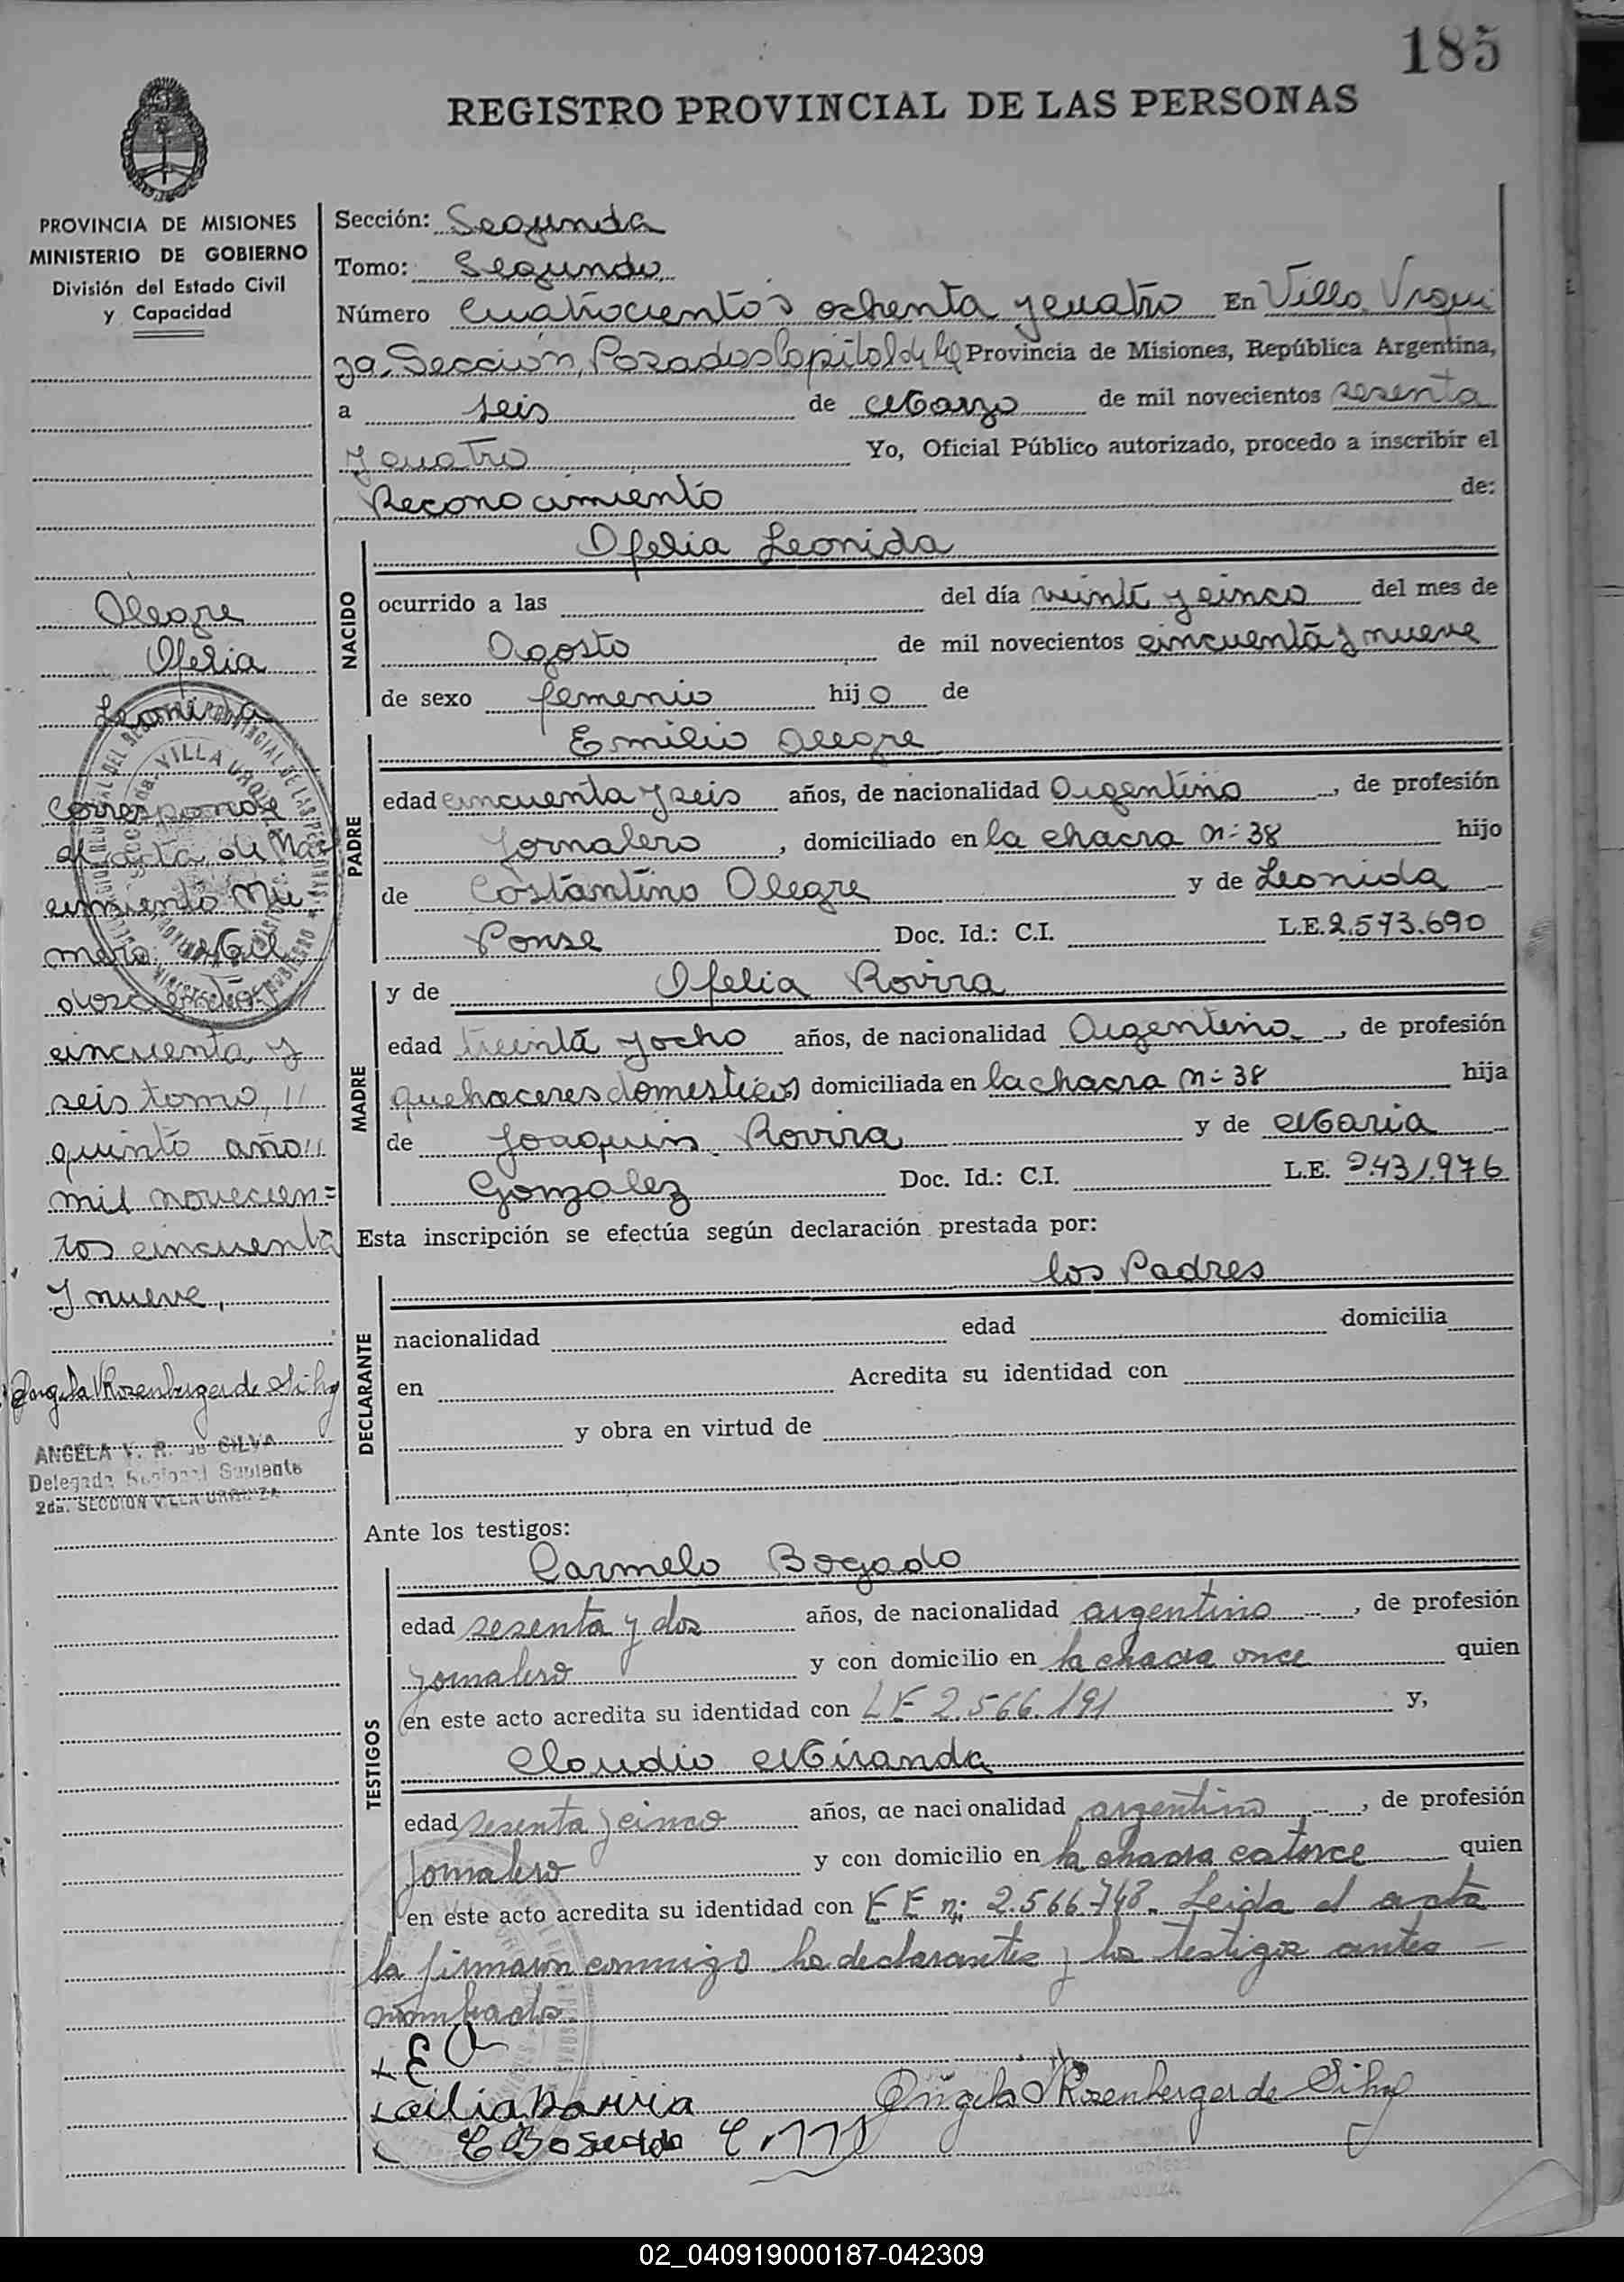 185
REGISTRO PROVINCIAL DE LAS PERSONAS
PROVINCIA DE MISIONES
MINISTERIO DE GOBIERNO
División del Estado Civil
y Capacidad
Sección: Segunda
Tomo: Segundo
Número Cuatrocientos ochenta y cuatro En Villa Urqui
za Sección, Posadas Capital de la Provincia de Misiones, República Argentina,
a seis de Marzo de mil novecientos sesenta
y cuatro Yo, Oficial Público autorizado, procedo a inscribir el
Reconocimiento de:
NACIDO
Ofelia Leonida
ocurrido a las del día veinte y cinco del mes de
Agosto de mil novecientos cincuenta y nueve
de sexo femenio hijo de
PADRE
Emilio Alegre
edad cincuenta y seis años, de nacionalidad Argentino, de profesión
Jornalero, domiciliado en la chacra n- 38 hijo
de Costantino Alegre y de Leonida
Ponse Doc. Id.: C.I. L.E. 2.573.690
MADRE
y de Ofelia Rovira
edad treinta y ocho años, de nacionalidad Argentina, de profesión
quehaceres domesticos domiciliada en la chacra n- 38 hija
de Joaquin Rovira y de Maria
Gonzalez Doc. Id.: C.I. L.E. 2.431.976
Esta inscripción se efectúa según declaración prestada por:
DECLARANTE
los Padres
nacionalidad edad domicilia
en Acredita su identidad con
y obra en virtud de
Ante los testigos:
TESTIGOS
Carmelo Bogado
edad sesenta y dos años, de nacionalidad argentino, de profesión
jornalero y con domicilio en la chacra once quien
en este acto acredita su identidad con LE 2.566.191 y,
Claudio Miranda
edad sesenta y cinco años, de nacionalidad argentino, de profesión
Jornalero y con domicilio en la chacra catorce quien
en este acto acredita su identidad con n: 2.566.748. Leida el acta
la firmaron conmigo los declarantes y los testigos antes
nombrados
E A
C Bogado
Angela V Rosenberger de Silva
Alegre
Ofelia
Leonida
Corresponde
al acta de Nac
imiento Nu-
mero Mil
doscientos
cincuenta y
seis tomo
quinto año
mil novecien=
tos cincuenta
y nueve,
Angela V Rosenberger de Silva
ANGELA V. R. de SILVA
Delegada Regional Suplente
2da. SECCION VILLA URQUIZA
02_040919000187-042309